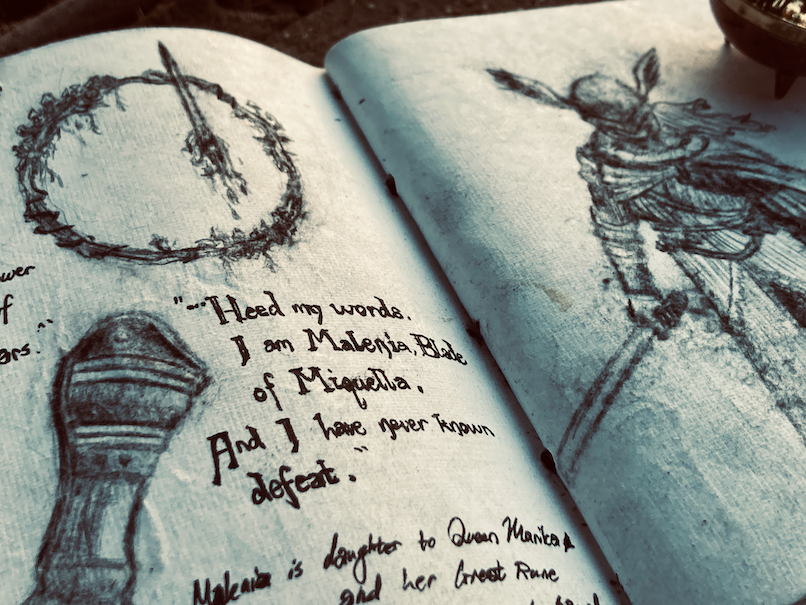 of
"... Heed my words.
I am Malenia, Blade
of Miquella.
And I have never known
defeat."
Malenia is daughter to Queen Marika
and her Great Rune